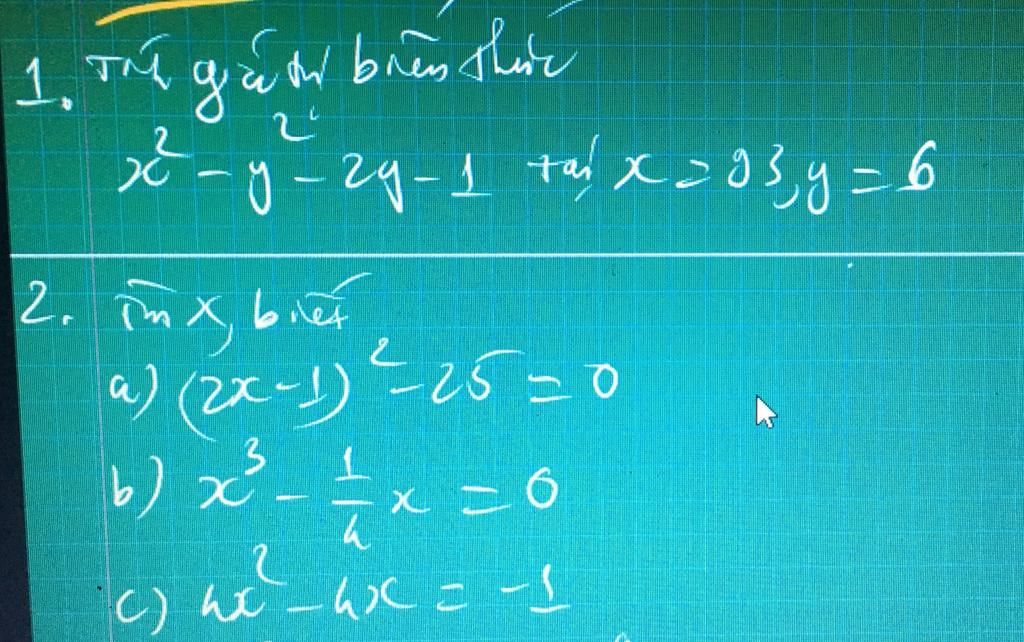 1. Tính giá trị biểu thức
x² - y² - 2y - 1 tại x = 93, y = 6
2. Tìm x, biết
a) (2x - 1)² - 25 = 0
b) x³ - 1/4 x = 0
c) 4x² - 4x = -1